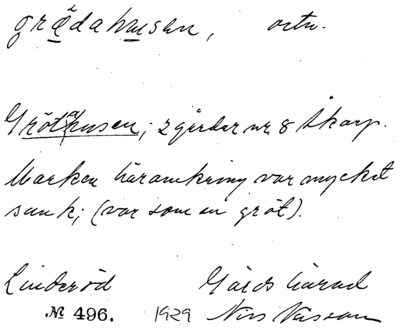 grädahusen, ortn.
Grötahusen; 2 gårdar nr 8 Skarp.
Marken häromkring var mycket
sank; (var som en gröt).
Linderöd Gärds härad
№ 496. 1929 Nils Nilsson